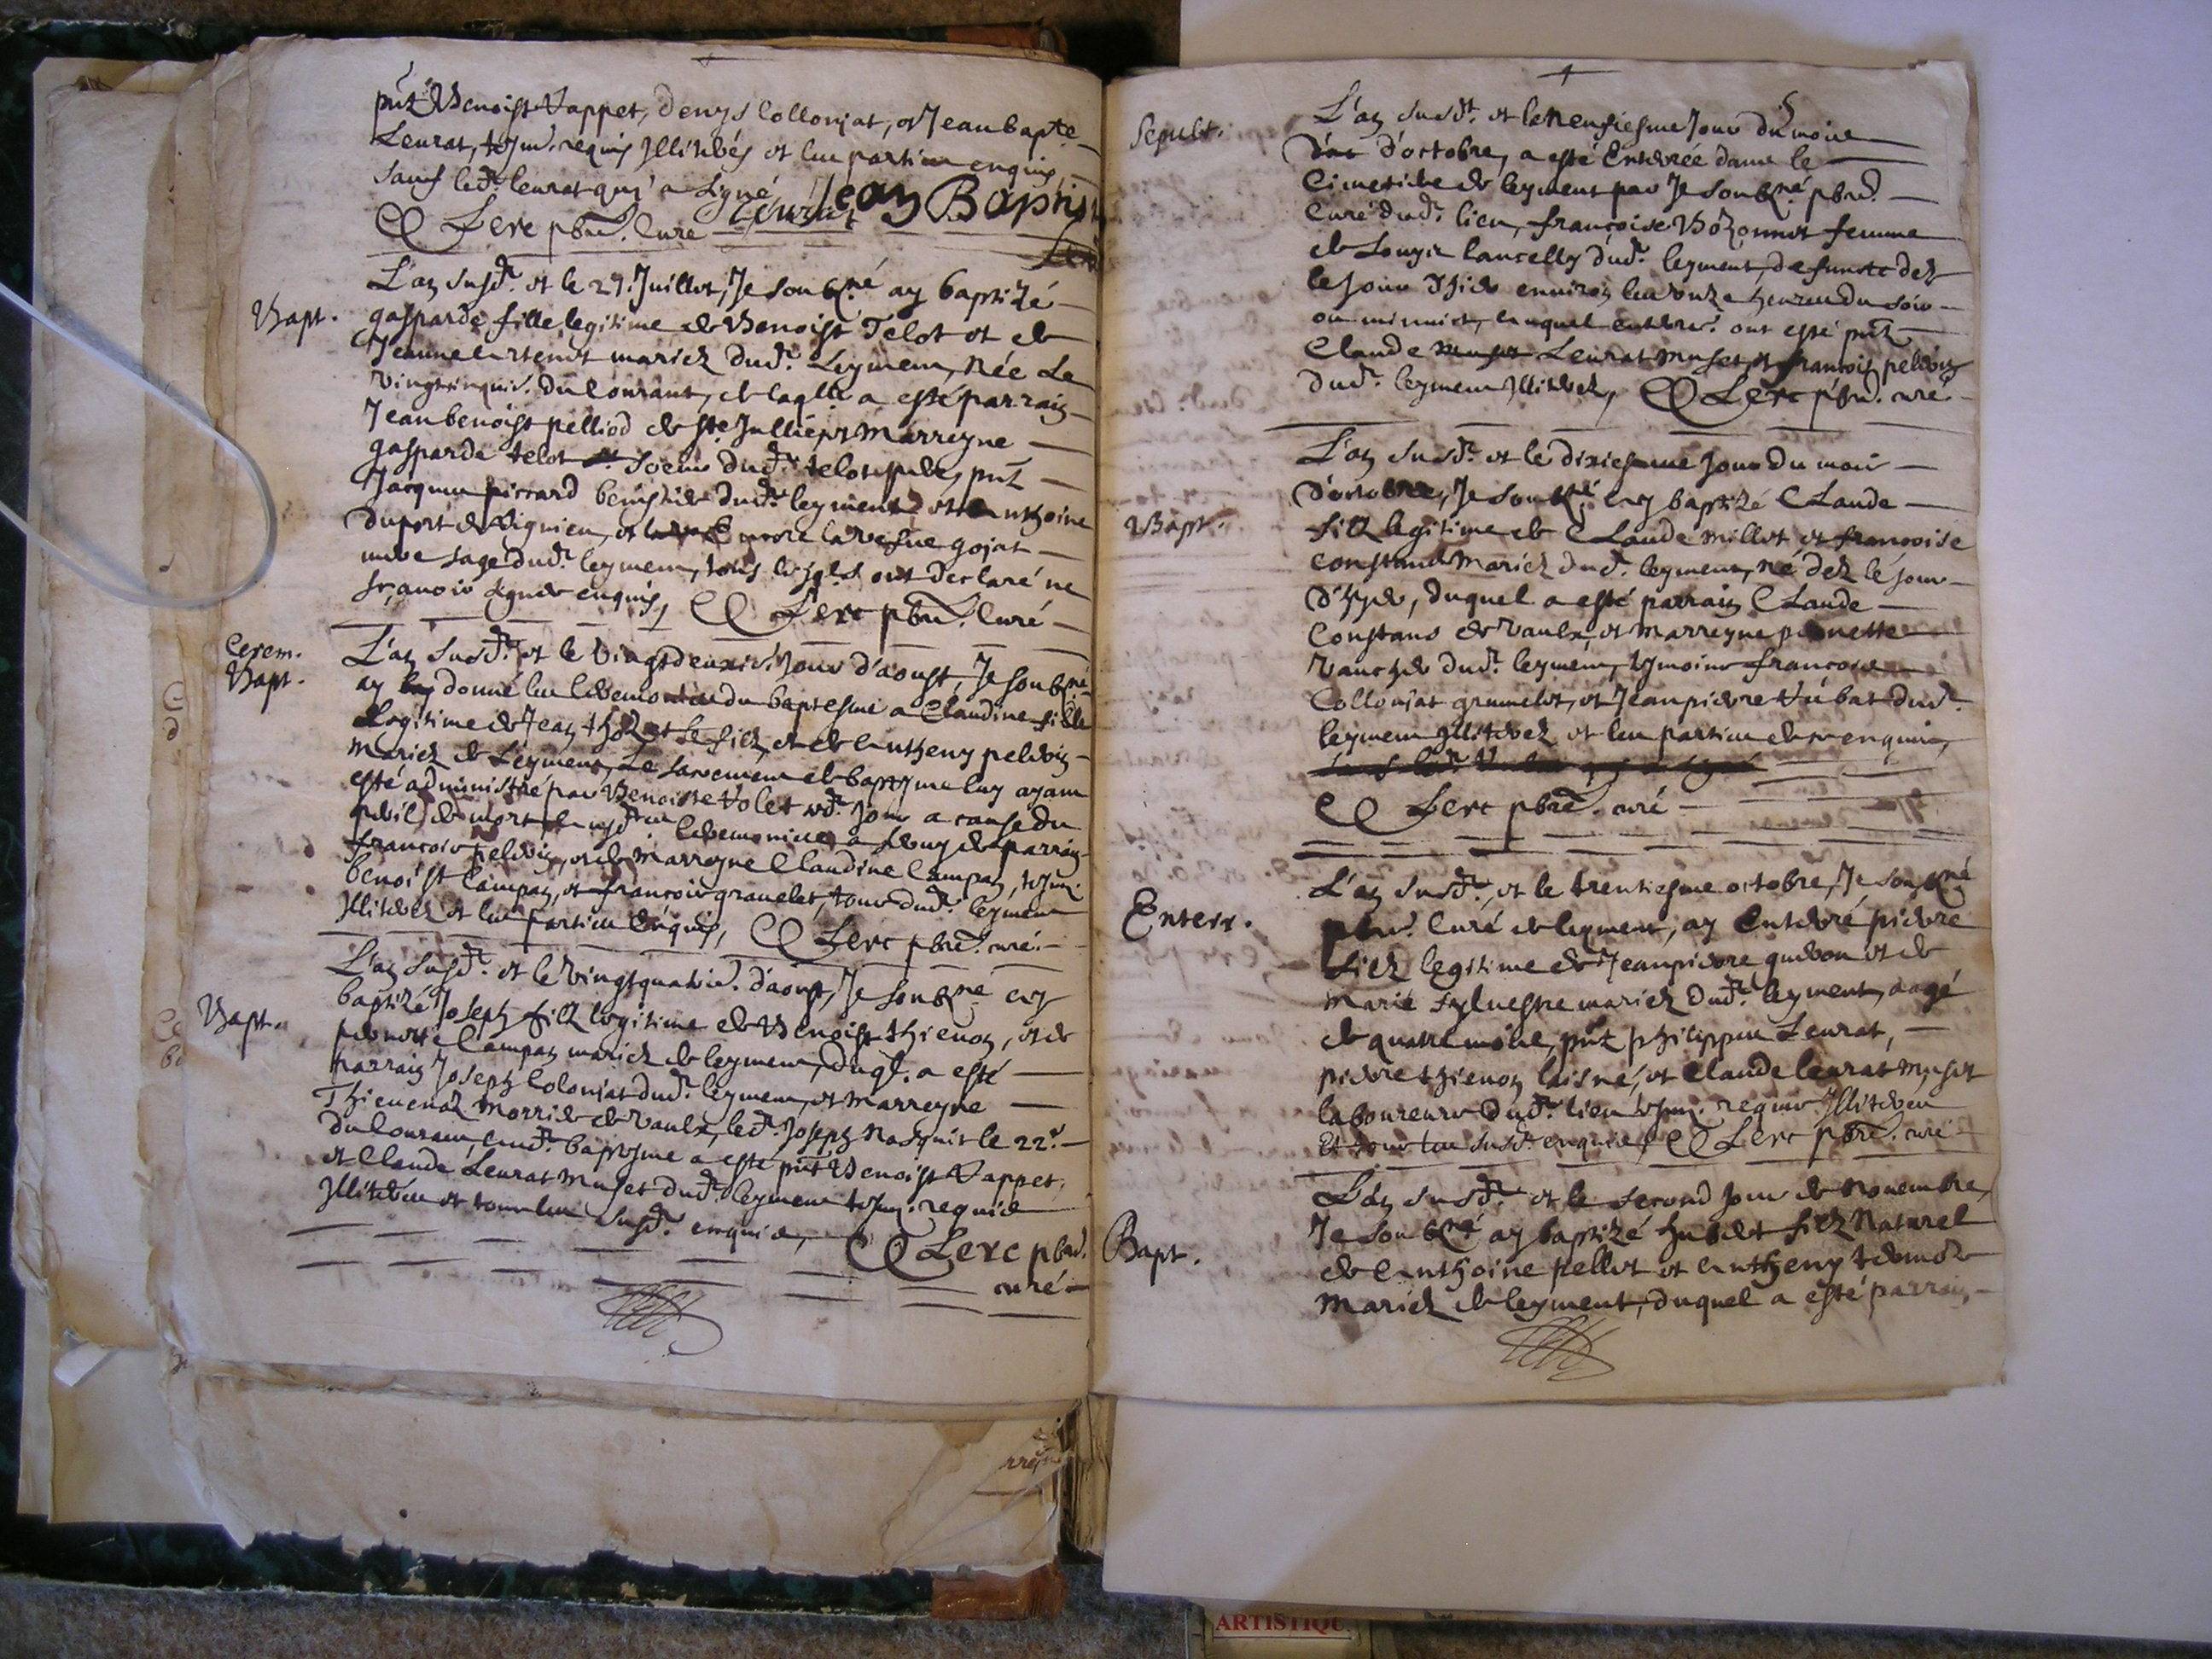 pnt Benoist Vappet, denys Collonjat, et Jean bapte
Leurat, tesm. requis Illiterés et les parties enquis,
sauf led. leurat qui a signé, Jean Baptis
Leurat
Clerc pbre. Curé
L'an susd. et le 27. Juillet, Je soubné ay baptizé
Bapt.
gasparde, fille legitime de Benoist Telot et de
Jeanne mariez dud. Leyment, née Le
vingtcinqui. du Courant, de laqlle a esté parrain
Jean benoist pelliod de ste Jullie, et Marreyne
gasparde telot soeur dud. telot, pnt
Jacques piccard dud. leyment, et Anthoine
duport de Vignieu, et Encore la vefve gojat
mere sage dud. leyment, tous lesqls ont declaré ne
sçavoir signer enquis, Clerc pbre. Curé
Cerem.
Bapt.
L'an susd. et le vingtdeuxie. Jour d'aoust, Je soubné
ay donné les Ceremonies du baptesme a Claudine fille
legitime de Jean le filz, et de Antheny
mariez de Leyment, Le sacrement de baptesme luy ayant
esté administré par Benoiste Volet Jour a cause du
peril de mort, Ceremonies a servy de parrain
francois, et de marreyne Claudine Campan, tesm.
benoist Campan, et francois gravelet, tous dud. leyment
Illiterez et les parties Enquis, Clerc pbre. curé.
L'an susd. et le vingtquatrie. d'aoust, Je soubné ay
Bapt.
baptizé Joseph filz legitime de Benoist thievon, et de
pernette Campan mariez de leyment, duql. a esté
parrain Joseph Colonjat dud. leyment, et Marreyne
Morrier de Vaulx, led. Joseph Nasquit le 22e.
du Courant, Aud. baptesme a esté pnt Benoist Vappet,
et Claude Leurat Muset dud. leyment tesm. requis
Illiteres et tous les susd. enquis, Clerc pbre.
curé
Sepult.
L'an susd. et le Neufiesme Jour du mois
d'octobre, a esté Enterrée dans le
Cimetiere de leyment par Je soubné. pbre.
Curé dud. lieu, françoise Bozonnet femme
de Lancelly dud. leyment, defuncte dez
le Jour d'hier environ les onze heures du soir
ou minuict, auquel enterre. ont esté pnt
Claude Leurat Muset, et francois
dud. leyment Illiterez, Clerc pbre. curé
L'an susd. et le dixiesme Jour du mois
Bapt.
d'octobre, Je soubné ay baptizé Claude
filz legitime de Claude millet et francoise
constans Mariez dud. leyment, né dez le Jour
d'hyer, duquel a esté parrain Claude
Constans de Vaulx, et marreyne pernette
dud. leyment, tesmoins francois
Collonjat gravelet, et Jean pierre dud.
leyment Illiterez et les parties de ce enquis,
Clerc pbre. curé
Enterr.
L'an susd., et le trentiesme octobre, Je soubné
pbre. Curé de leyment, ay Enterré pierre
filz legitime de Jean pierre et de
Marie Sylvestre mariez dud. leyment, aagé
de quatre mois, pnt philippe Leurat,
pierre thievon laisné, et Claude leurat muset
laboureurs dud. lieu tesm. requis Illiteres
Et tous les susd. enquis, Clerc pbre. curé
L'an susd. et le second Jour de Novembre,
Bapt.
Je soubné ay baptizé hubert filz Naturel
de Anthoine pellet et Antheny
Mariez de leyment, duquel a esté parrain
ARTISTIQUE